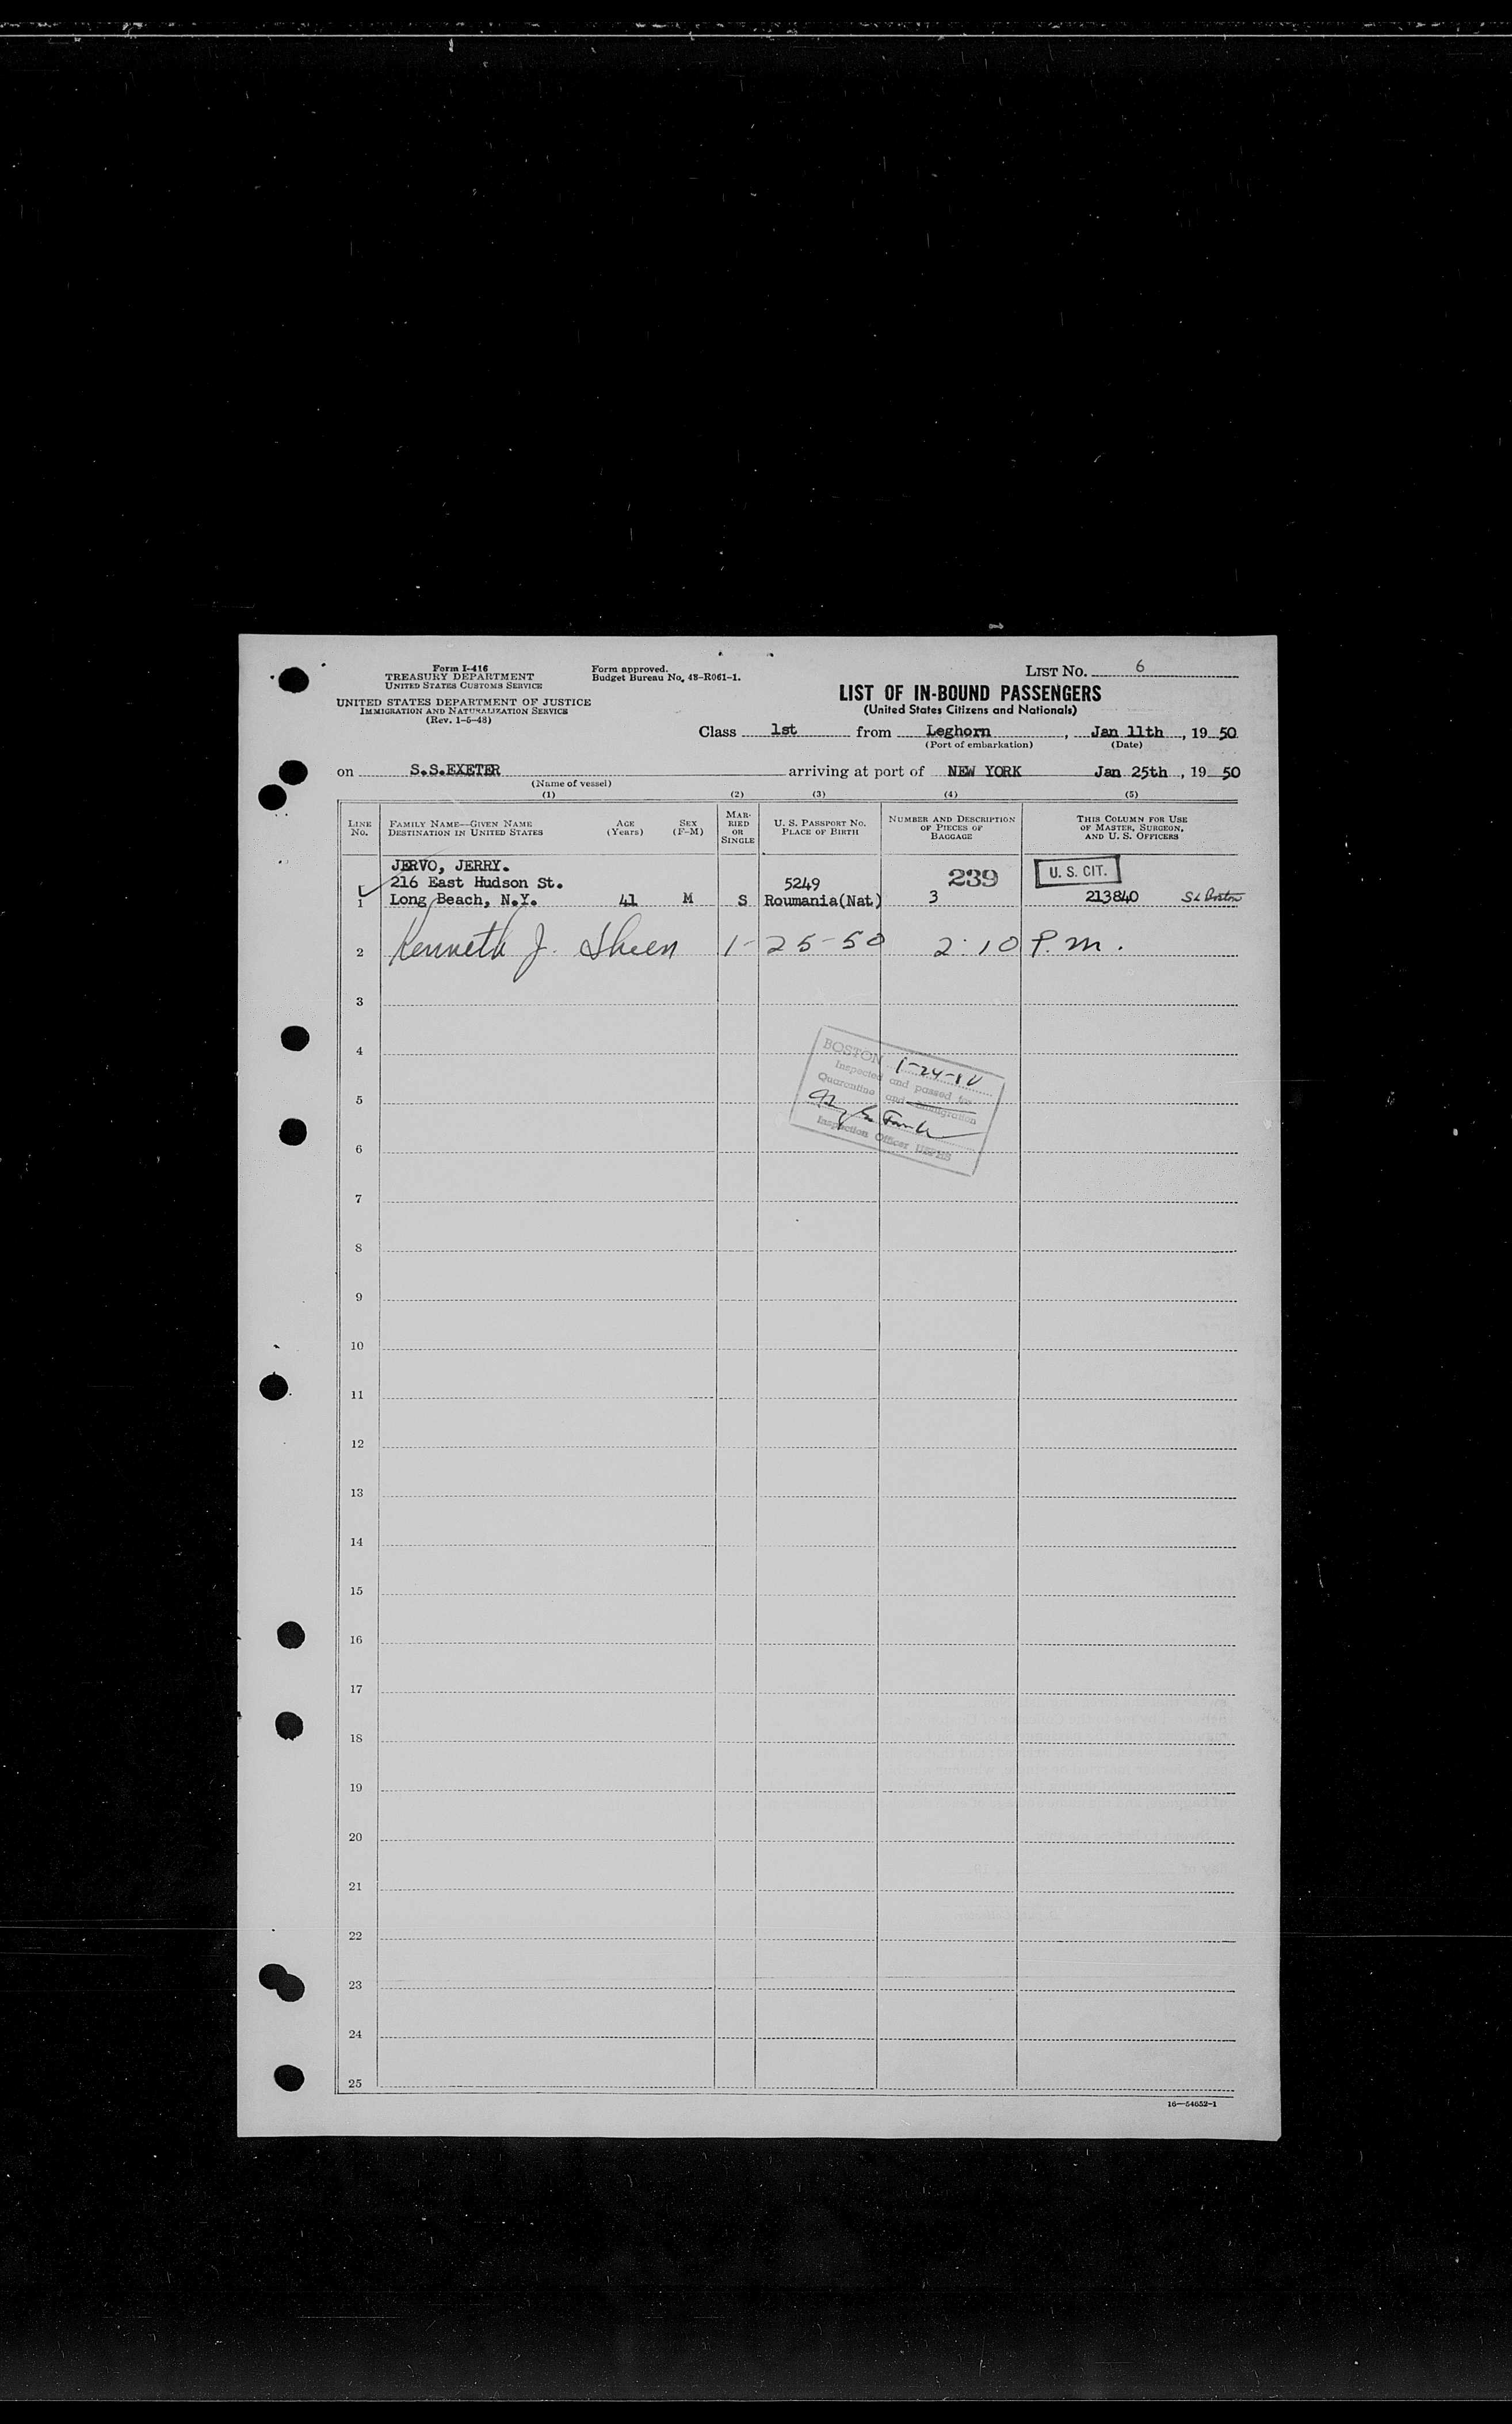 Form I-416
TREASURY DEPARTMENT
UNITED STATES CUSTOMS SERVICE
UNITED STATES DEPARTMENT OF JUSTICE
IMMIGRATION AND NATURALIZATION SERVICE
(Rev. 1-5-48)
Form approved.
Budget Bureau No. 43-R061-1.
LIST NO. 6
LIST OF IN-BOUND PASSENGERS
(United States Citizens and Nationals)
Class 1st from Leghorn, Jan 11th, 19 50
(Port of embarkation) (Date)
on S.S.EXETER arriving at port of NEW YORK Jan 25th, 19 50
(Name of vessel)
(1) (2) (3) (4) (5)
LINE NO.
FAMILY NAME—GIVEN NAME
DESTINATION IN UNITED STATES
AGE (Years)
SEX (F-M)
MARRIED OR SINGLE
U. S. PASSPORT NO.
PLACE OF BIRTH
NUMBER AND DESCRIPTION
OF PIECES OF
BAGGAGE
THIS COLUMN FOR USE
OF MASTER, SURGEON,
AND U. S. OFFICERS
JERVO, JERRY.
216 East Hudson St. 5249 239 U. S. CIT.
1 Long Beach, N.Y. 41 M S Roumania(Nat) 3 213840
2 Kenneth J. Sheen 1-25-50 2:10 P.m.
3
4
BOSTON 1-24-
Inspected and passed for
Quarantine and Immigration
Inspection Officer USPHS
5
6
7
8
9
10
11
12
13
14
15
16
17
18
19
20
21
22
23
24
25
16—54652-1